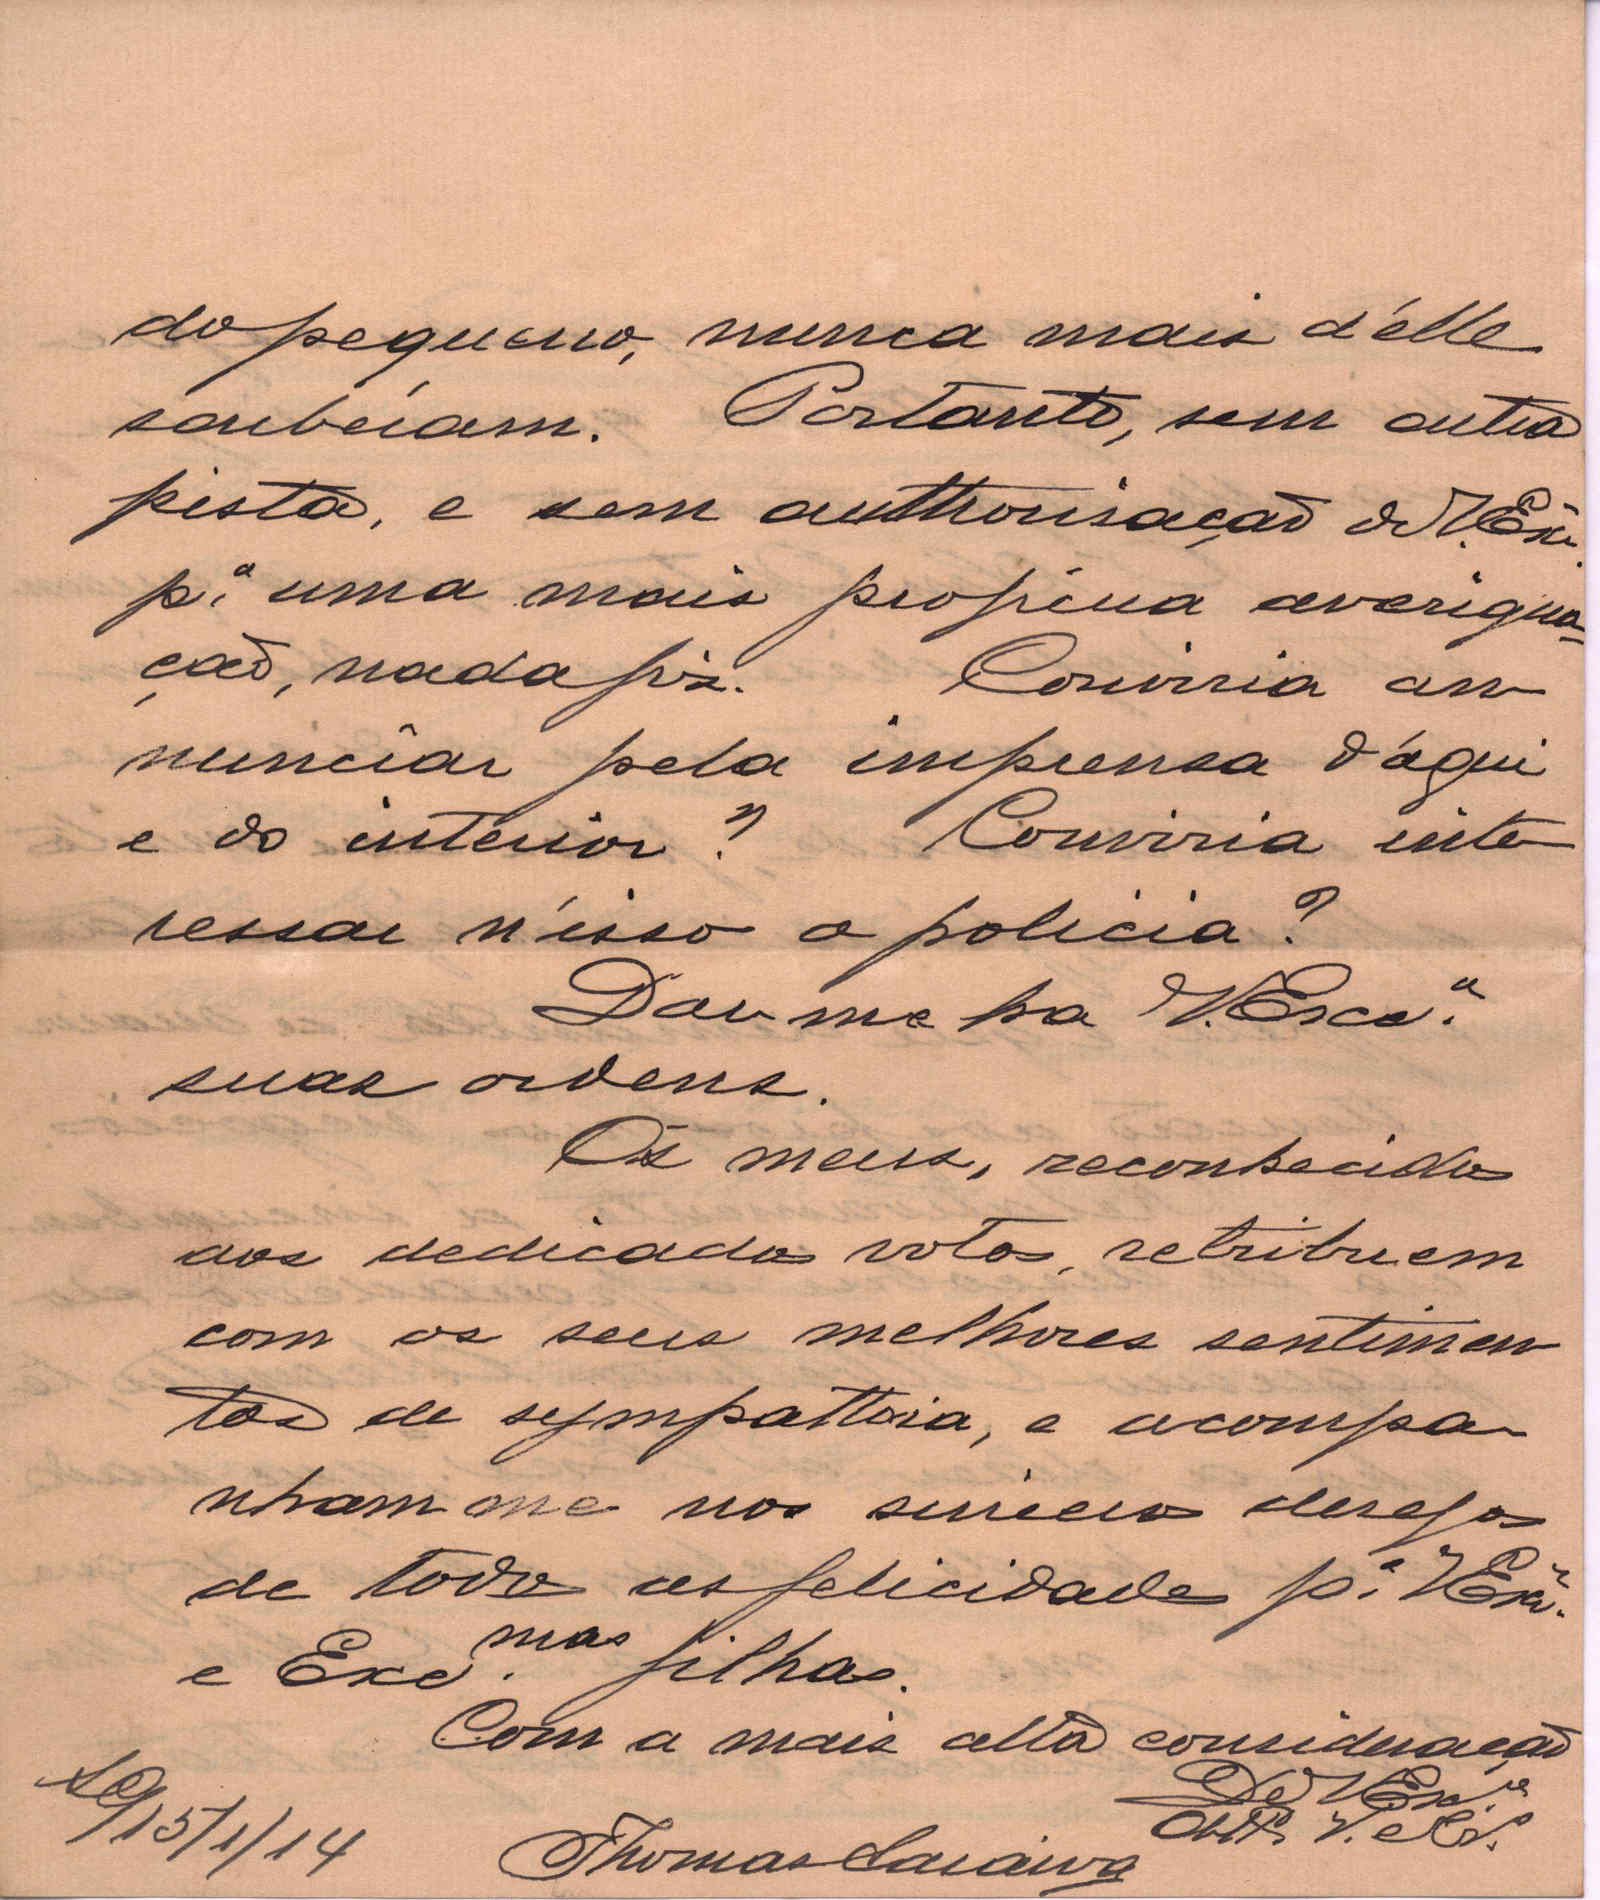 do pequeno, nunca mais d'elle
souberam. Portanto, sem outra
pista, e sem authorisação de V. Ex.
p.ª uma mais proficua averigua-
ção, nada fiz. Conviria an-
nunciar pela imprensa d'aqui
e do interior? Conviria inte-
ressar n'isso a policia?
Dar-me-ha V. Exc.ª
suas ordens.
Os meus, reconhecidos
aos dedicados votos, retribuem
com os seus melhores sentimen-
tos de sympathia, e acompa-
nham me nos sinceros desejos
de todas as felicidades p.ª V Ex.ª
e Exc.mas filhas.
Com a mais alta consideração
De V Ex.ª
15/1/14
Thomas Saraiva